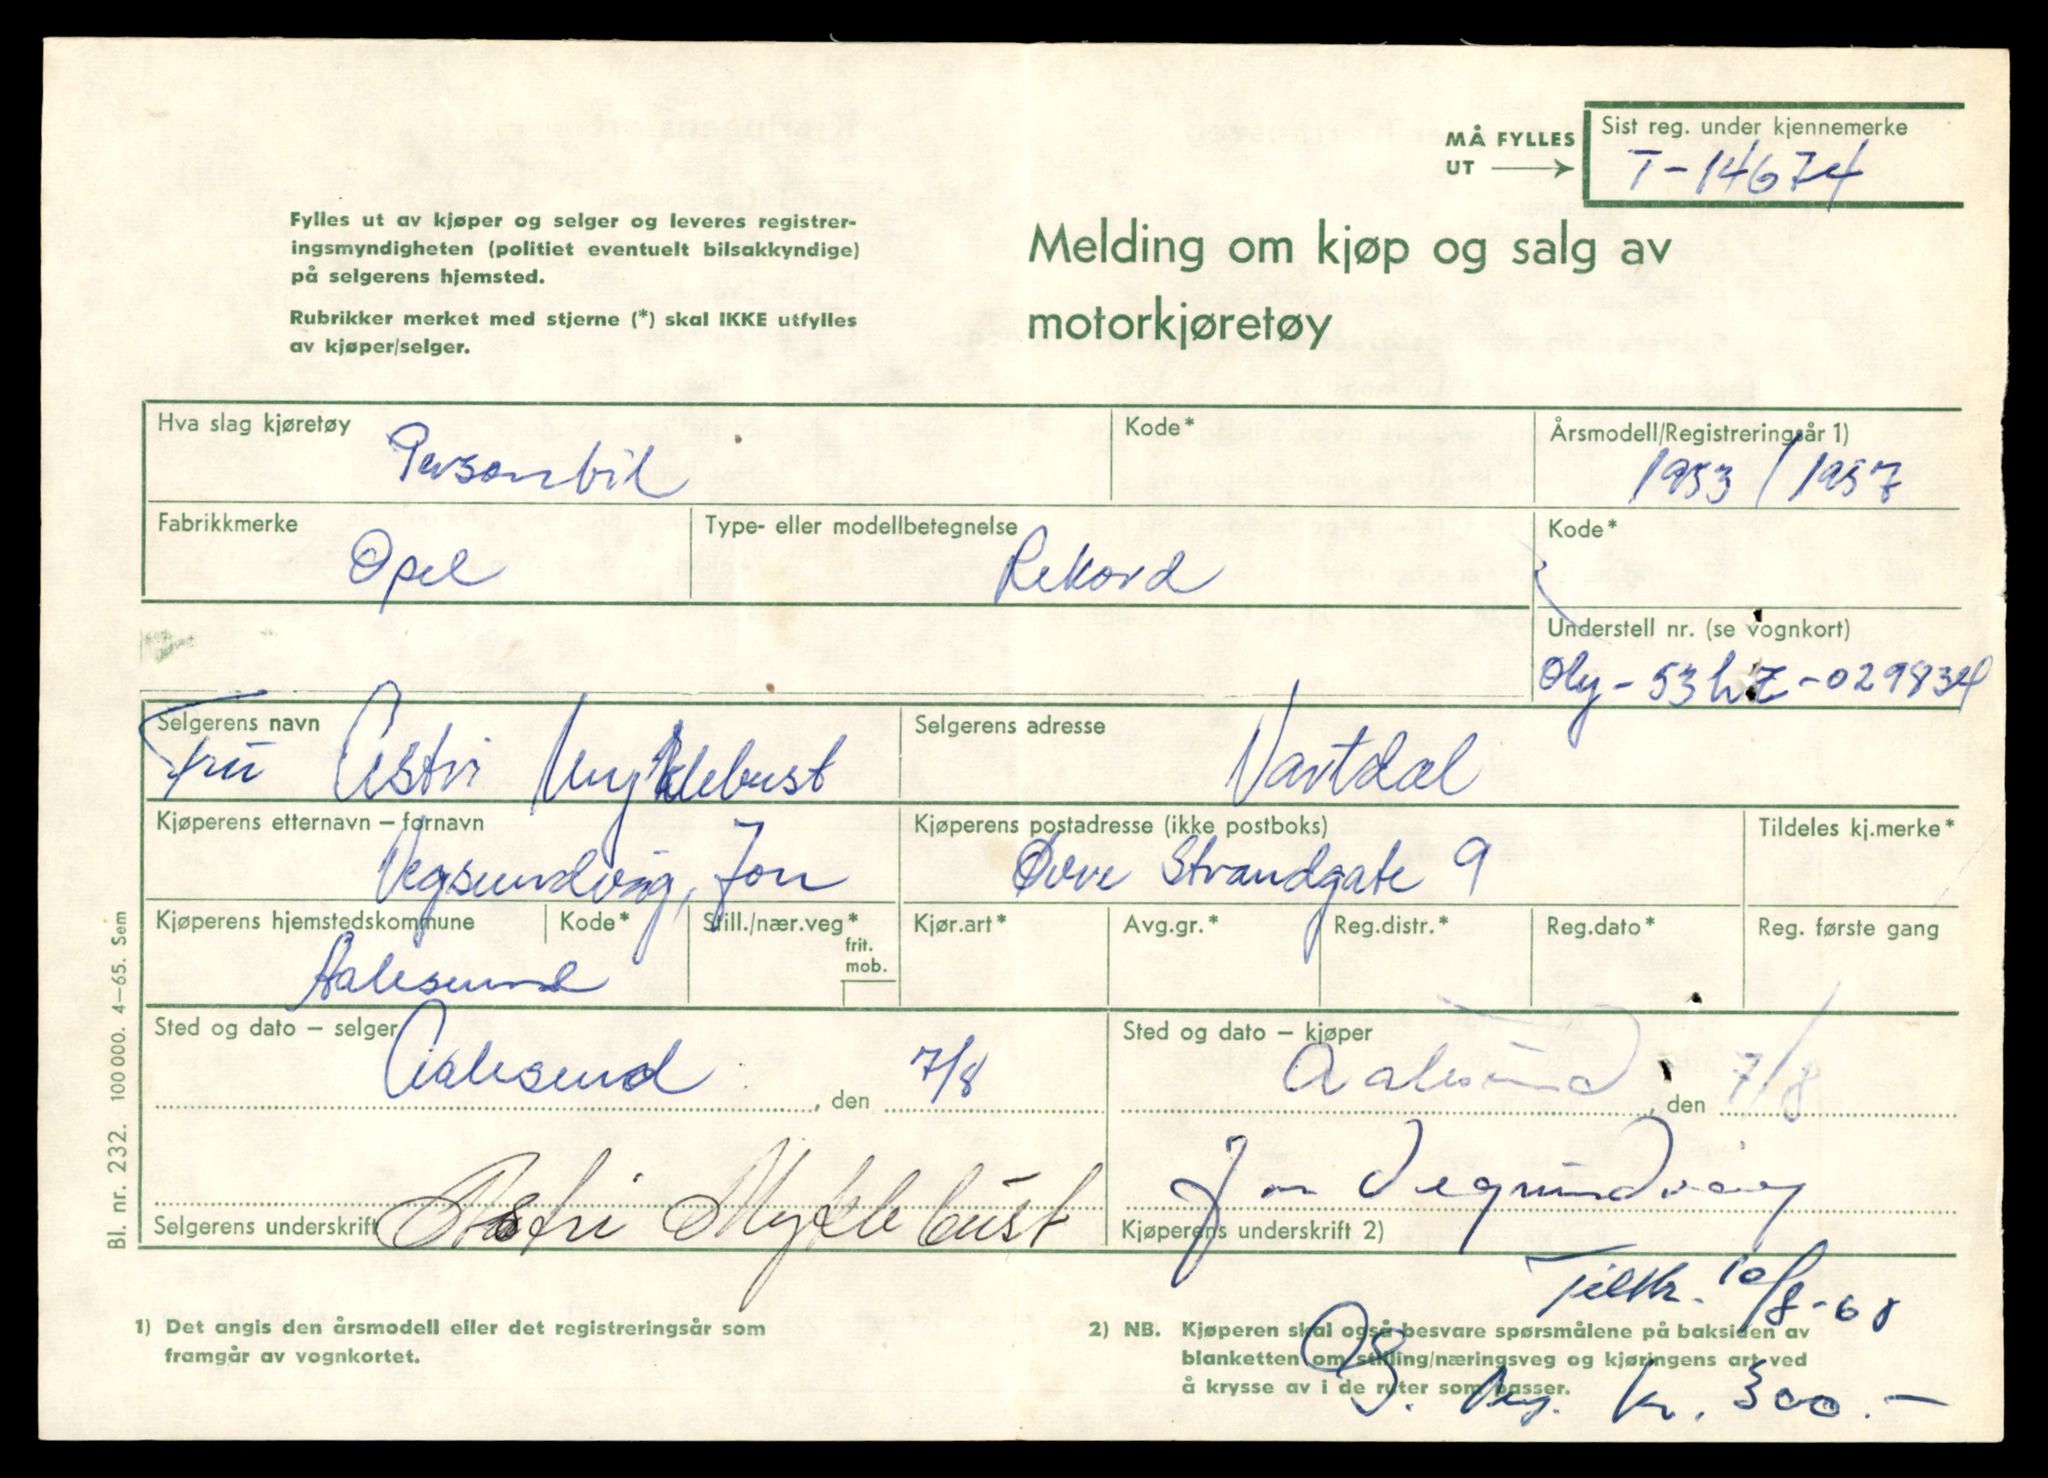 MÅ FYLLES UT → Sist reg. under kjennemerke
T-14674
Fylles ut av kjøper og selger og leveres registrer-
ingsmyndigheten (politiet eventuelt bilsakkyndige)
på selgerens hjemsted.
Rubrikker merket med stjerne (*) skal IKKE utfylles
av kjøper/selger.
Melding om kjøp og salg av
motorkjøretøy
Hva slag kjøretøy Kode* Årsmodell/Registreringsår 1)
Personbil 1953 / 1957
Fabrikkmerke Type- eller modellbetegnelse Kode*
Opel Rekord
Understell nr. (se vognkort)
Oly-53hZ-029834
Selgerens navn Selgerens adresse
Fru Astri Myklebust Vartdal
Kjøperens etternavn – fornavn Kjøperens postadresse (ikke postboks) Tildeles kj.merke*
Vegsundvåg, Jon Øvre Strandgate 9
Kjøperens hjemstedskommune Kode* Still./nær.veg* frit. mob. Kjør.art* Avg.gr.* Reg.distr.* Reg.dato* Reg. første gang
Aalesund
Sted og dato – selger Sted og dato – kjøper
Aalesund, den 7/8 Aalesund, den 7/8
Astri Myklebust Jon Vegsundvåg
Selgerens underskrift Kjøperens underskrift 2)
10/8-68
1) Det angis den årsmodell eller det registreringsår som
framgår av vognkortet.
2) NB. Kjøperen skal også besvare spørsmålene på baksiden av
blanketten om stilling/næringsveg og kjøringens art ved
å krysse av i de ruter som passer.
Kr. 300.-
Bl. nr. 232. 100 000. 4–65. Sem